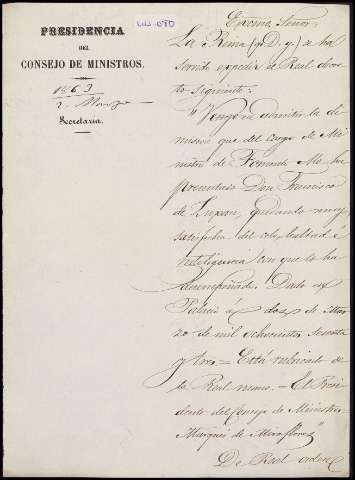 PRESIDENCIA
DEL
CONSEJO DE MINISTROS.
1863
2. Marzo
Secretaría.
Excmo. Señor.
La Reina (q. D. g.) se ha
servido expedir el Real decre-
to siguiente:
"Vengo en admitir la di-
mision que del cargo de Mi-
nistro de Fomento Me ha
presentado Don Francisco
de Luxan, quedando muy
satisfecha del celo, lealtad é
inteligencia con que lo ha
desempeñado. Dado en
Palacio á dos de Mar-
zo de mil ochocientos sesenta
y tres.= Está rubricado de
la Real mano.= El Presi
dente del Consejo de Ministros
Marqués de Miraflores"
De Real orden